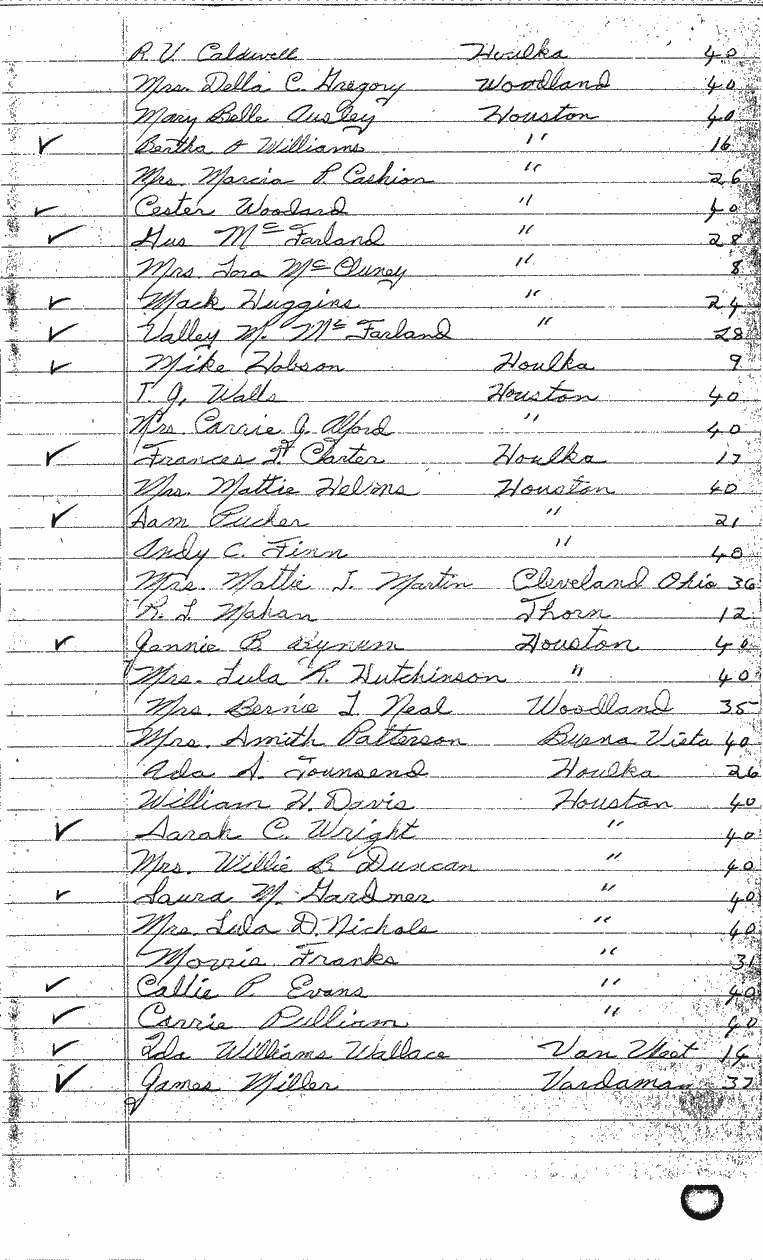 R. V. Caldwell Houlka 40
Mrs. Della C. Gregory Woodland 40
Mary Belle Ausley Houston 40
✓ Bertha O Williams " 16
Mrs. Marcia P. Cashion " 26
✓ Cester Woodard " 40
✓ Gus McFarland " 28
Mrs. Lora McCluney " 8
✓ Mack Huggins " 24
✓ Valley M. McFarland " 28
✓ Mike Hobson Houlka 9
T. J. Walls Houston 40
Mrs. Carrie J. Alford " 40
✓ Frances Carter Houlka 17
Mrs. Mattie Helms Houston 40
✓ Sam Pucker " 21
Andy C. Finn " 40
Mrs. Mattie J. Martin Cleveland Ohio 36
R. L. Mahan Thorn 12
✓ Jannie B. Bynum Houston 40
Mrs. Lula R. Hutchinson " 40
Mrs. Bernie L. Neal Woodland 35
Mrs. Smith Patterson Buena Vista 40
Ada S. Townsend Houlka 26
William H. Davis Houston 40
✓ Sarah C. Wright " 40
Mrs. Willie B. Duncan " 40
✓ Laura M. Gardner " 40
Mrs. Lula D. Nichols " 40
Morris Franks " 31
✓ Callie P. Evans " 40
✓ Carrie Pulliam " 40
✓ Ida Williams Wallace Van Vleet 14
✓ James Miller Vardaman 37